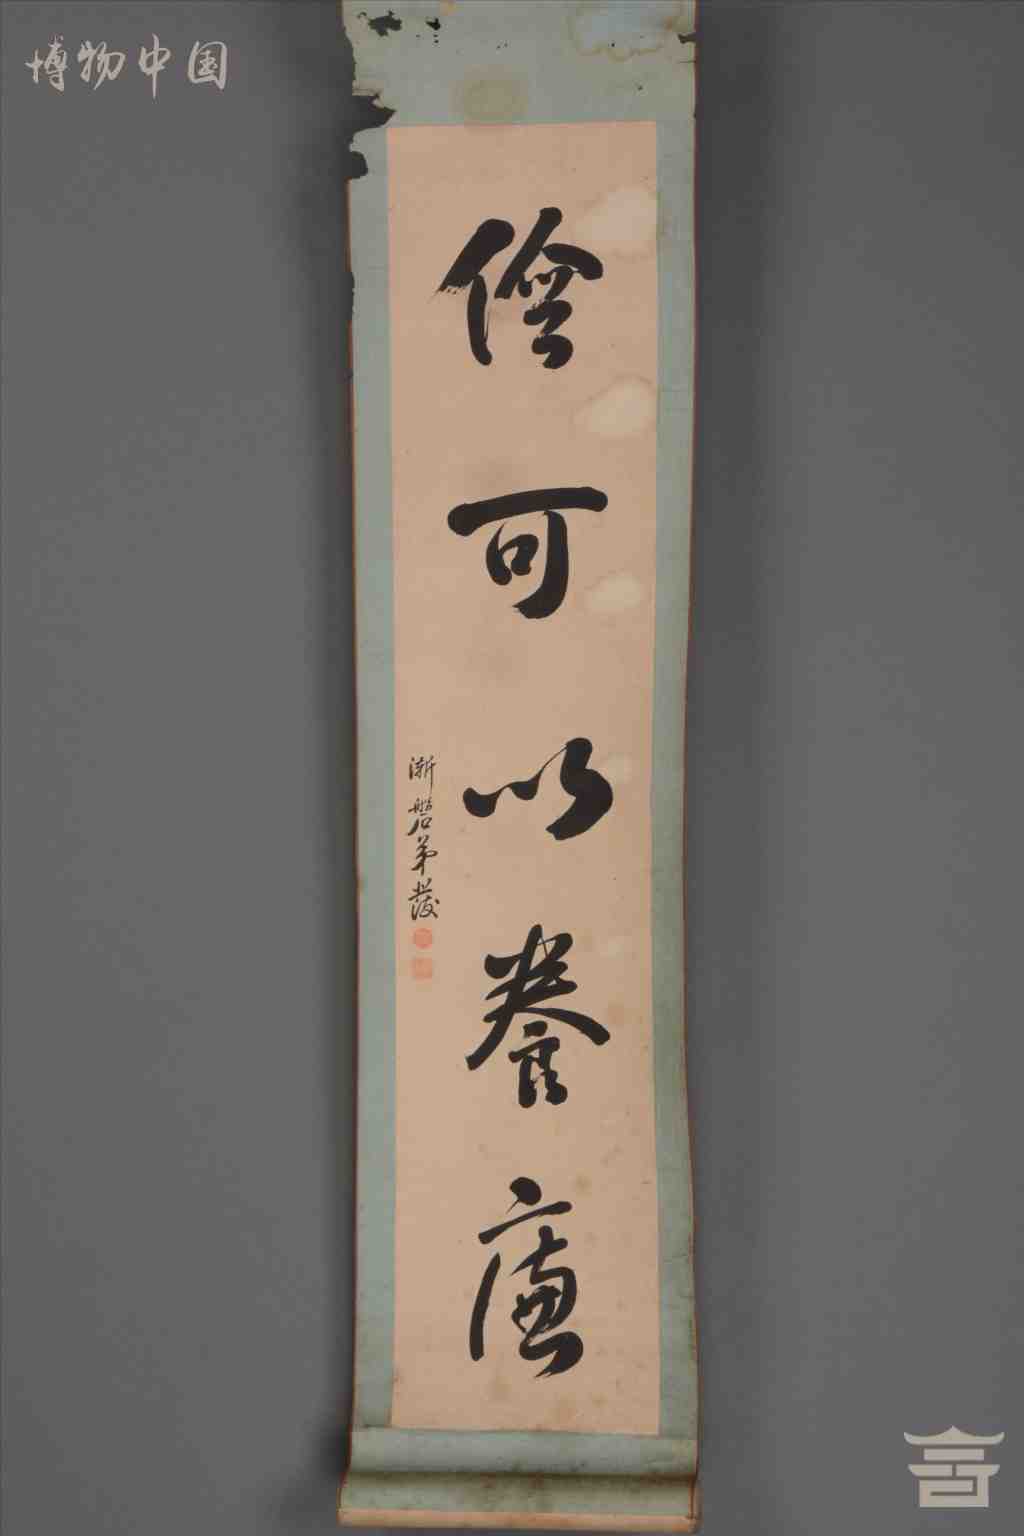 博物中国
儉可以養廉
漸磐弟